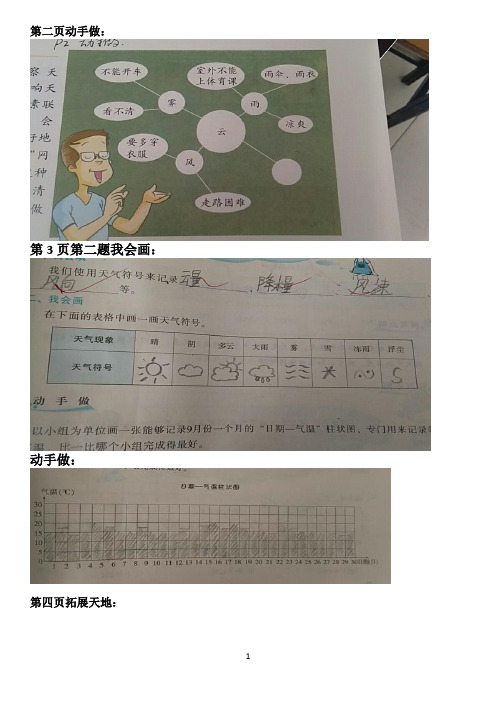 第二页动手做：
P2 动手做.
察 天
响天
素联
会
行地
"网
种
清
做
不能开车
室外不能
上体育课
雨伞、雨衣
雾
雨
看不清
云
凉爽
要多穿
衣服
风
走路困难
第 3 页第二题我会画：
我们使用天气符号来记录云量、降水量、风速
风向等。
二、我会画
在下面的表格中画一画天气符号。
天气现象 晴 阴 多云 大雨 雾 雪 冻雨 浮尘
天气符号
动 手 做
以小组为单位画一张能够记录9月份一个月的"日期—气温"柱状图，专门用来记录
比一比哪个小组完成得最好。
动手做：
日期—气温柱状图
气温(℃)
30
25
20
15
10
5
0
1 2 3 4 5 6 7 8 9 10 11 12 13 14 15 16 17 18 19 20 21 22 23 24 25 26 27 28 29 30日期(日)
第四页拓展天地：
1